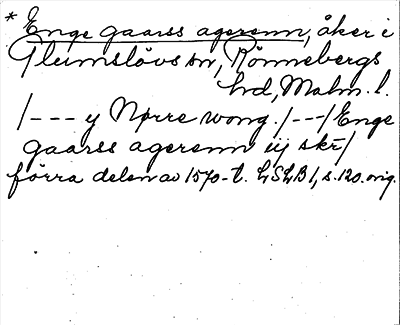 * Enge gaarss agerenn, åker i
Glumslövs sn, Rönnebergs
hd, Malm. l.
/--- y Nørre wong. /---/ Enge
gaarss agerenn iij skr/
förra delen av 1570-t. LSLB 1, s. 120. orig.